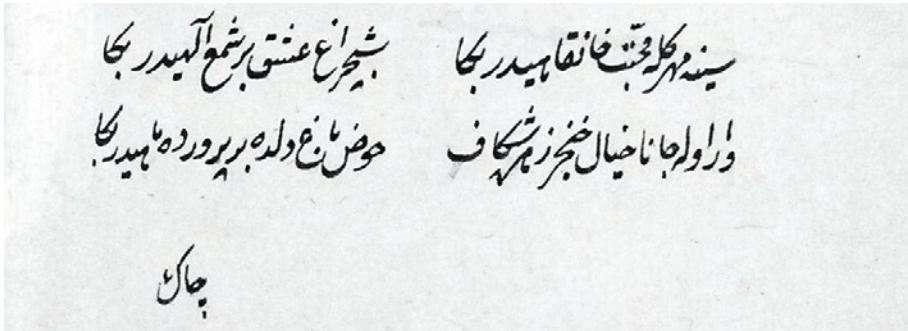 سینه مهرکله محبت خانقاهیدر بکا شبچراغ عشق بر شمع الهیدر بکا
وار اوله جانا خیال خنجر شکاف حوض باغ دلده بر پرورده ماهیدر بکا
چاك